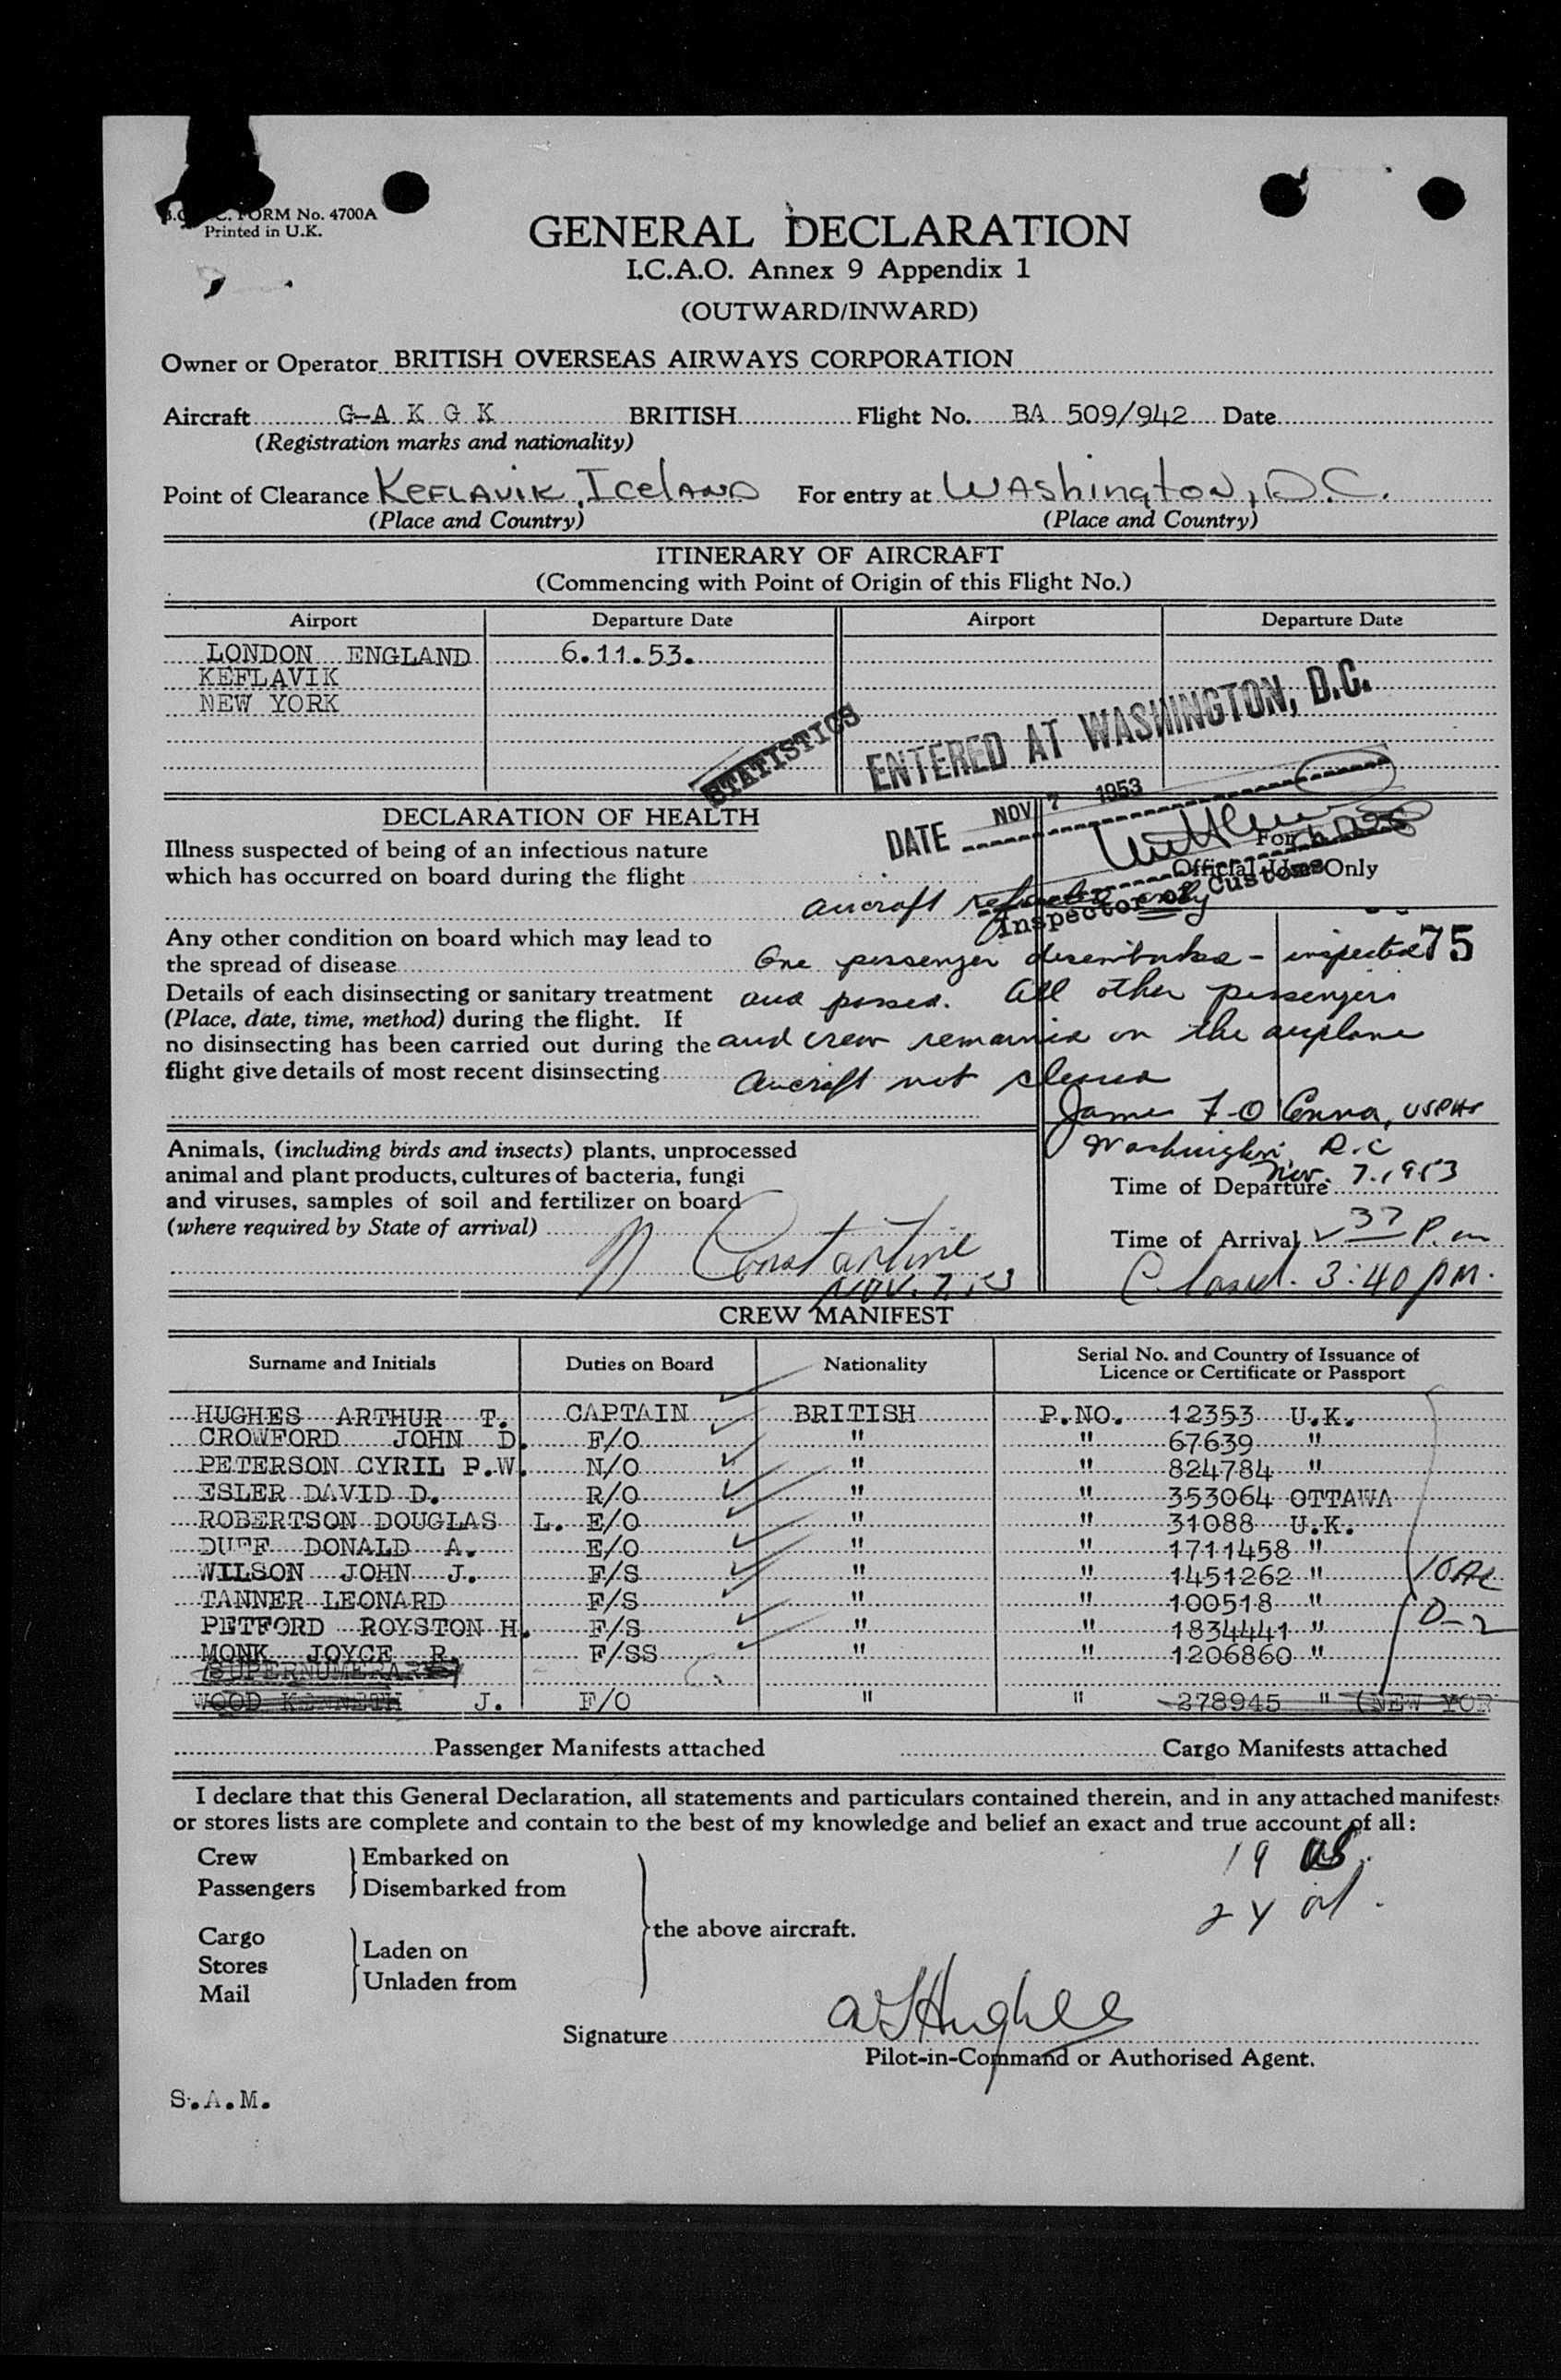 FORM No. 4700A
Printed in U.K.
GENERAL DECLARATION
I.C.A.O. Annex 9 Appendix 1
(OUTWARD/INWARD)
Owner or Operator BRITISH OVERSEAS AIRWAYS CORPORATION
Aircraft G-A K G K BRITISH Flight No. BA 509/942 Date
(Registration marks and nationality)
Point of Clearance KEFLAVIK, ICELAND For entry at WASHINGTON, D.C.
(Place and Country) (Place and Country)
ITINERARY OF AIRCRAFT
(Commencing with Point of Origin of this Flight No.)
Airport Departure Date Airport Departure Date
LONDON ENGLAND 6.11.53.
KEFLAVIK
NEW YORK
STATISTICS
ENTERED AT WASHINGTON, D.C.
DATE NOV 7 1953
Inspector of Customs
DECLARATION OF HEALTH
For
Official Use Only
Illness suspected of being of an infectious nature
which has occurred on board during the flight
aircraft only
Any other condition on board which may lead to
the spread of disease One passenger disembarked - inspected 75
Details of each disinsecting or sanitary treatment and passed. All other passengers
(Place, date, time, method) during the flight. If
no disinsecting has been carried out during the and crew remained on the airplane
flight give details of most recent disinsecting Aircraft not
James F. O'Conna, USPHS
Washington D.C
Nov. 7, 1953
Animals, (including birds and insects) plants, unprocessed
animal and plant products, cultures of bacteria, fungi
and viruses, samples of soil and fertilizer on board
(where required by State of arrival)
N Constantine
Nov. 7, 53
Time of Departure
Time of Arrival 37 P.m
Closed. 3:40 pm.
CREW MANIFEST
Surname and Initials Duties on Board Nationality Serial No. and Country of Issuance of
Licence or Certificate or Passport
HUGHES ARTHUR T. CAPTAIN BRITISH P.NO. 12353 U.K.
CROWFORD JOHN D. F/O " " 67639 "
PETERSON CYRIL P.W. N/O " " 824784 "
ESLER DAVID D. R/O " " 353064 OTTAWA
ROBERTSON DOUGLAS L. E/O " " 31088 U.K.
DUFF DONALD A. E/O " " 1711458 "
WILSON JOHN J. F/S " " 1451262 "
TANNER LEONARD F/S " " 100518 "
PETFORD ROYSTON H. F/S " " 1834441 "
MONK JOYCE R. F/SS " " 1206860 "
D-2
SUPERNUMERARY
WOOD KENNETH J. F/O " " 278945 " (NEW YOR
Passenger Manifests attached Cargo Manifests attached
I declare that this General Declaration, all statements and particulars contained therein, and in any attached manifests
or stores lists are complete and contain to the best of my knowledge and belief an exact and true account of all:
Crew Embarked on
Passengers Disembarked from
the above aircraft.
Cargo
Stores Laden on
Mail Unladen from
19 US.
Signature A T Hughes
Pilot-in-Command or Authorised Agent.
S.A.M.